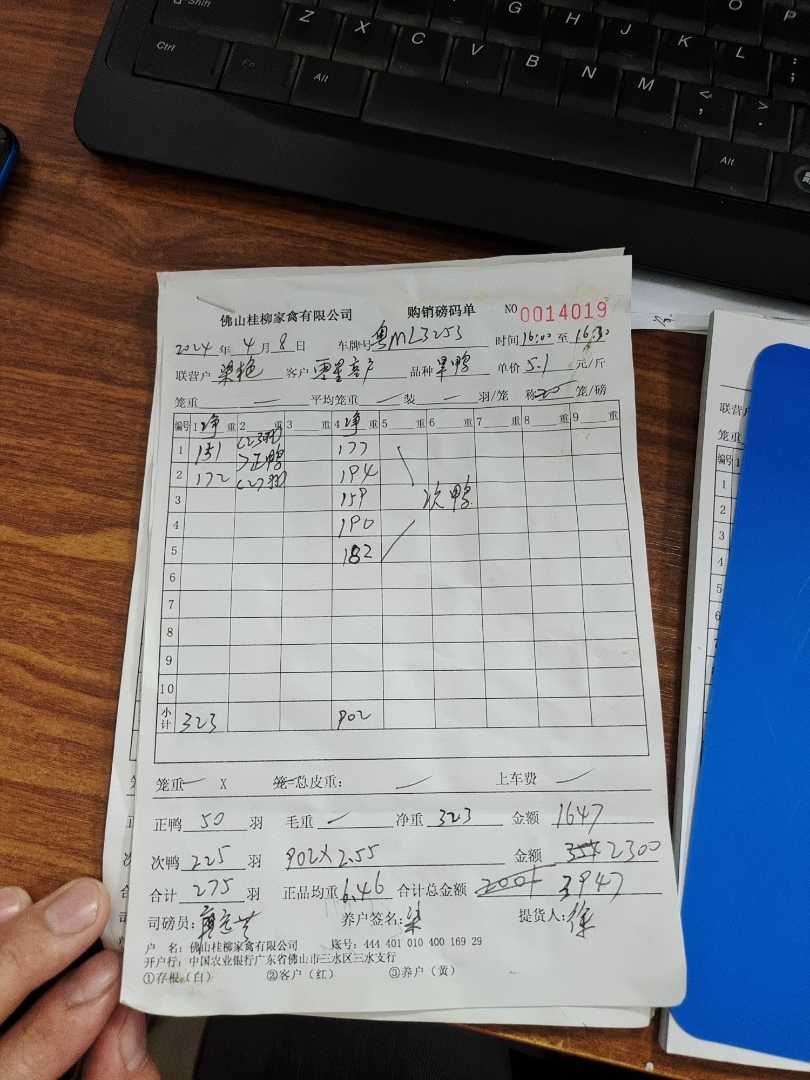 Shift Z X C V B N M G H J K L O P
Ctrl Fn Alt Alt
佛山桂柳家禽有限公司 购销磅码单 NO 0014019
2024 年 4 月 8 日 车牌号 粤ML3253 时间 16:00 至 16:30
联营户 梁艳 客户 零星客户 品种 单价 5.1 元/斤
笼重 — 平均笼重 — 装 — 羽/笼 称 笼/磅
编号 1 净 重 2 重 3 重 4 净 重 5 重 6 重 7 重 8 重 9 重
1 151 (23羽) 177
正鸭
2 172 (27羽) 194
3 159 次鸭
4 190
5 182
6
7
8
9
10
小计 323 902
笼重 — X 笼=总皮重: — 上车费 —
正鸭 50 羽 毛重 — 净重 323 金额 1647
次鸭 225 羽 902X2.55 金额 2300
合计 275 羽 正品均重 6.46 合计总金额 3947
司磅员: 养户签名: 梁 提货人: 徐
户 名: 佛山桂柳家禽有限公司 账号: 444 401 010 400 169 29
开户行: 中国农业银行广东省佛山市三水区三水支行
①存根(白) ②客户(红) ③养户(黄)
联营户
笼重
编号 1
1
2
3
4
5
6